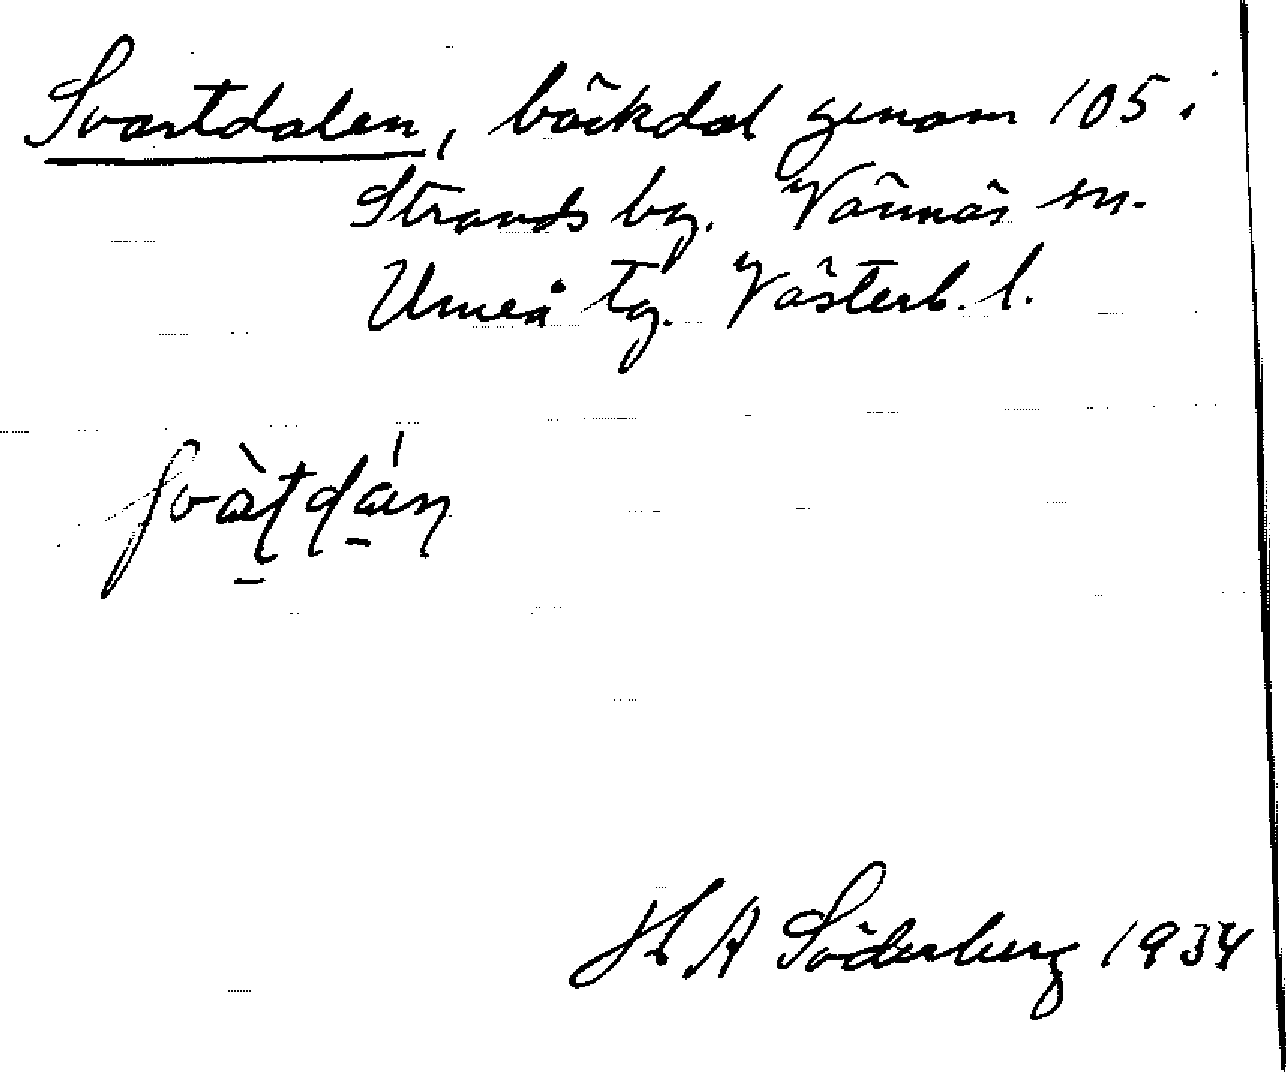 Svartdalen, bäckdal genom 105 i
Strands by. Vännäs sn.
Umeå tg. Västerb. l.
H A Söderberg 1934